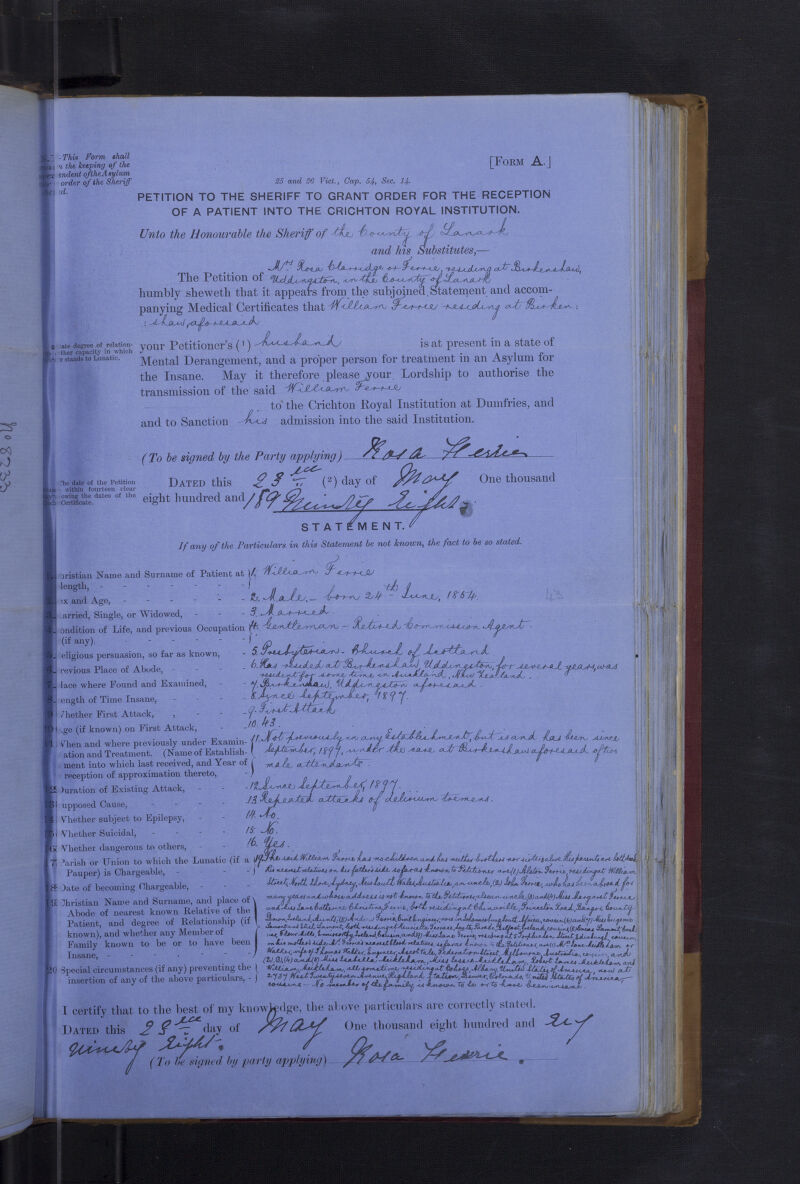 -This Form shall
the keeping of the
endent of the Asylum
order of the Sheriff
[FORM A.]
25 and 26 Vict., Cap. 54, Sec. 14.
PETITION TO THE SHERIFF TO GRANT ORDER FOR THE RECEPTION
OF A PATIENT INTO THE CRICHTON ROYAL INSTITUTION.
Unto the Honourable the Sheriff of the County of Lanark
and his Substitutes,—
The Petition of Mrs Rosa Clarridge or Ferrie, residing at Birkenshaw,
Uddingston, in the County of Lanark
humbly sheweth that it appears from the subjoined Statement and accom-
panying Medical Certificates that William Ferrie residing at Birken:
:shaw, aforesaid
ate degree of relation-
ther capacity in which
stands to Lunatic.
your Petitioner's (1) husband is at present in a state of
Mental Derangement, and a proper person for treatment in an Asylum for
the Insane. May it therefore please your Lordship to authorise the
transmission of the said William Ferrie
to the Crichton Royal Institution at Dumfries, and
and to Sanction his admission into the said Institution.
(To be signed by the Party applying) Rosa Ferrie
The date of the Petition
within fourteen clear
owing the dates of the
Certificate.
DATED this 23 (2) day of May One thousand
eight hundred and 189 Ninety Eight
STATEMENT.
If any of the Particulars in this Statement be not known, the fact to be so stated.
hristian Name and Surname of Patient at length, - 1. William Ferrie
ex and Age, - 2. Male, - born 24th June, 1854. 43
arried, Single, or Widowed, - 3. Married
ondition of Life, and previous Occupation (if any), - 4. Gentleman - Retired Commission Agent.
eligious persuasion, so far as known, - 5. Presbyterian - Church of Scotland
revious Place of Abode, - 6. Has resided at Birkenshaw, Uddingston, for several years, was
resident for some time in Auckland, New Zealand.
lace where Found and Examined, - 7. Birkenshaw, Uddingston aforesaid.
ength of Time Insane, - 8. Since September, 1897.
Whether First Attack, - 9. First Attack
ge (if known) on First Attack, - 10. 43.
When and where previously under Examin-
ation and Treatment. (Name of Establish-
ment into which last received, and Year of
reception of approximation thereto, -
11. Not previously in any Establishment, but is and has been since
September, 1897, under the care at Birkenshaw aforesaid of two
male attendants.
Duration of Existing Attack, - 12. Since September, 1897
upposed Cause, - 13. Repeated attacks of delirium tremens.
Whether subject to Epilepsy, - 14. No.
Whether Suicidal, - 15. No.
Whether dangerous to others, - 16. Yes.
Parish or Union to which the Lunatic (if a
Pauper) is Chargeable, -
Date of becoming Chargeable, -
Christian Name and Surname, and place of
Abode of nearest known Relative of the
Patient, and degree of Relationship (if
known), and whether any Member of
Family known to be or to have been
Insane, -
Special circumstances (if any) preventing the
insertion of any of the above particulars, -
19. The said William Ferrie has no children and has neither brothers nor sisters alive. His parents are both dead.
His nearest relatives on his father's side so far as known to Petitioner are (1) Alston Ferrie, residing at William
Street, North Shore, Sydney, New South Wales, Australia, an uncle, (2) John Ferrie, who has been abroad for
many years and whose address is not known to the Petitioner, also an uncle,
cousins - No member of the family is known to be or to have been insane.
I certify that to the best of my knowledge, the above particulars are correctly stated.
DATED this 23 day of May One thousand eight hundred and
Ninety Eight.
(To be signed by party applying) Rosa Ferrie.